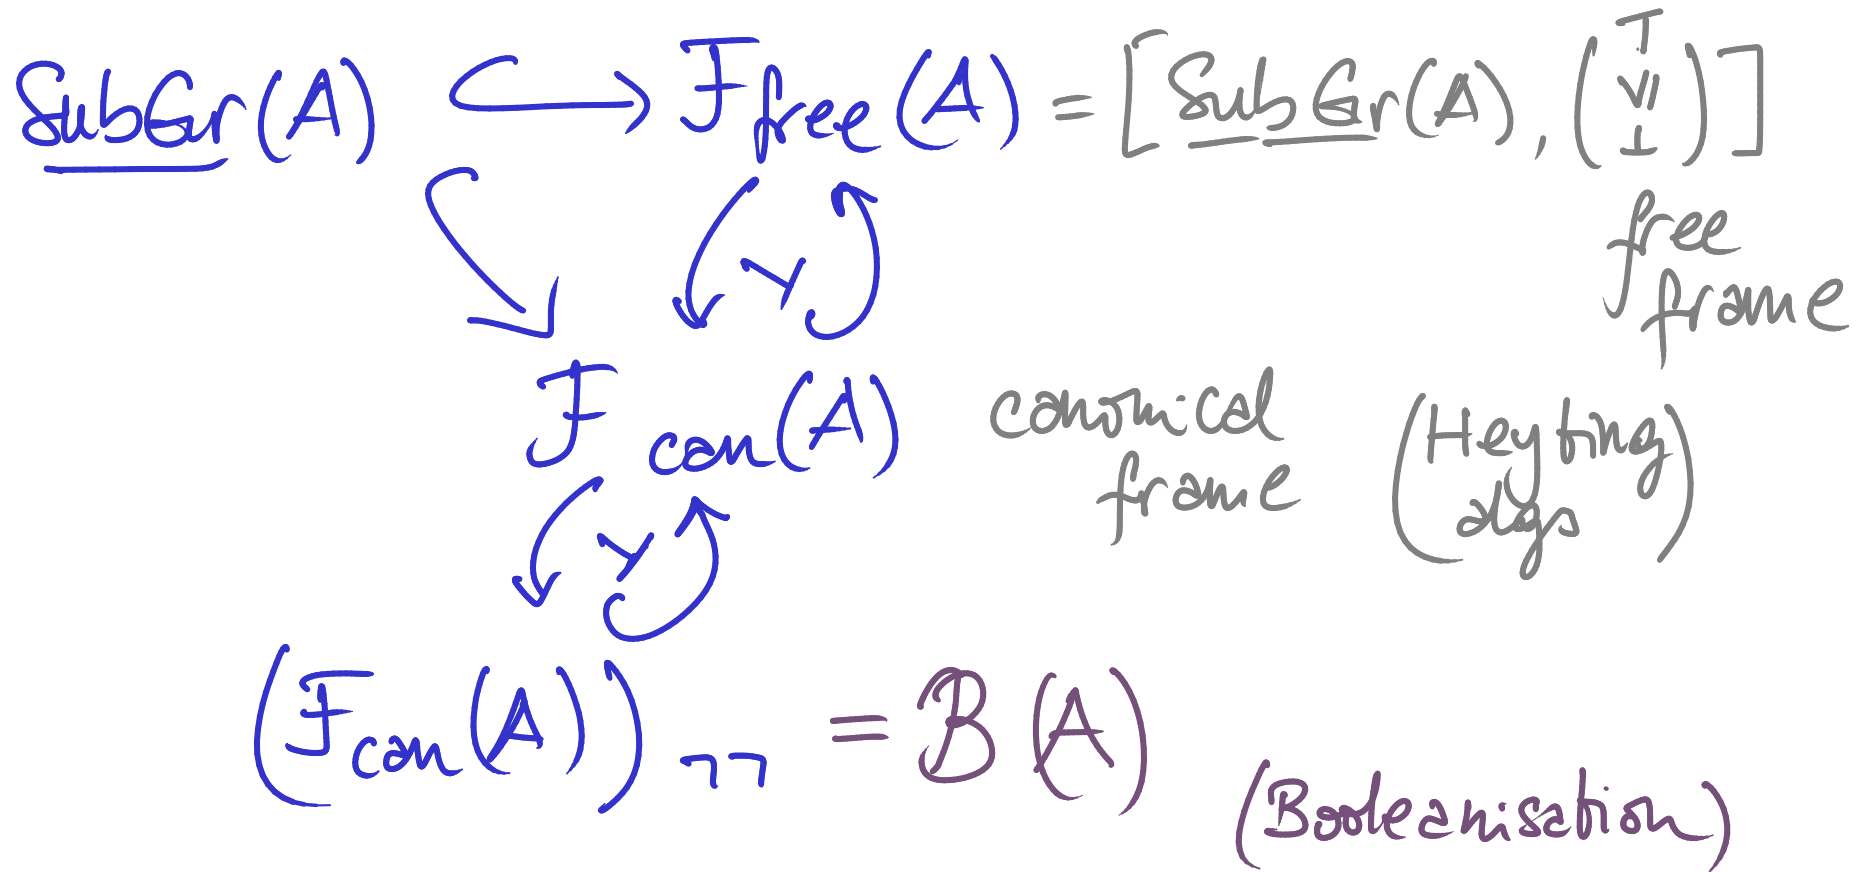 SubGr(A) ↪ F_free(A) = [SubGr(A), (⊤ ≥ ⊥)]
free
frame
Y
F_can(A) canonical
frame
(Heyting
algs)
Y
(F_can(A))_¬¬ = B(A)
(Booleanisation)